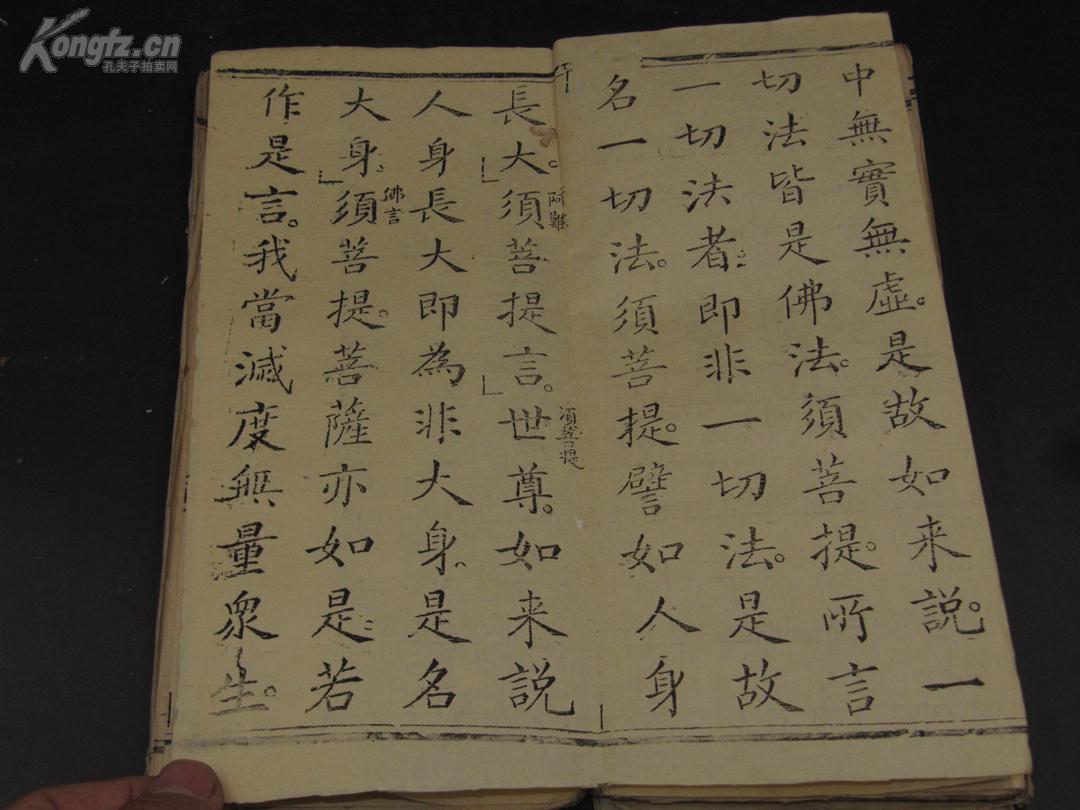 中無實無虛。是故如来説。一
切法皆是佛法。須菩提。所言
一切法者。即非一切法。是故
名一切法。須菩提。譬如人身
長大。須菩提言。世尊。如来説
阿難
須菩提
人身長大即為非大身。是名
大身。須菩提。菩薩亦如是。若
佛言
作是言。我當滅度無量衆生。
Kongfz.cn
孔夫子拍卖网